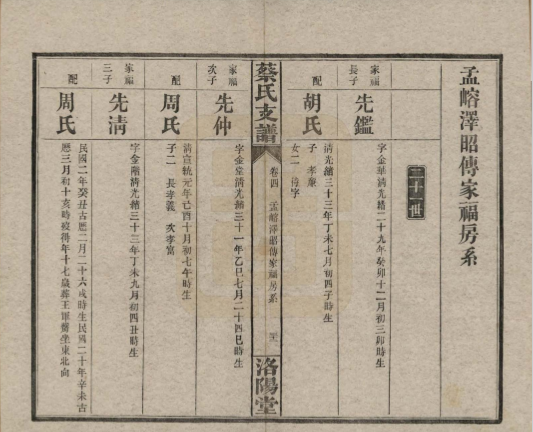 孟嵱澤昭傳家福房系
三十一世
家福長子
先鑑
字金華清光緒二十九年癸卯十二月初三卯時生
配
胡氏
清光緒三十三年丁未七月初四子時生
子 孝廉
女二 待字
蔡氏支譜
卷四
孟嵱澤昭傳家福房系
洛陽堂
家福次子
先仲
字金堂清光緒三十一年乙巳七月二十四巳時生
配
周氏
清宣統元年己酉十月初七午時生
子二 長孝義 次孝富
家福三子
先清
字金階清光緒三十三年丁未九月初四丑時生
配
周氏
民國二年癸丑古曆二月二十六戌時生民國二十年辛未古
曆三月初十亥時歿得年十七歲葬王軍嘴坐東北向